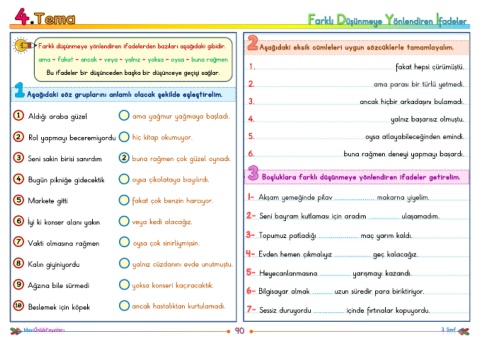 4.Tema
Farklı Düşünmeye Yönlendiren İfadeler
Farklı düşünmeye yönlendiren ifadelerden bazıları aşağıdaki gibidir.
ama - fakat - ancak - veya - yalnız - yoksa - oysa - buna rağmen
Bu ifadeler bir düşünceden başka bir düşünceye geçişi sağlar.
1 Aşağıdaki söz gruplarını anlamlı olacak şekilde eşleştirelim.
1 Aldığı araba güzel
ama yağmur yağmaya başladı.
2 Rol yapmayı beceremiyordu
hiç kitap okumuyor.
3 Seni sakin birisi sanırdım
2 buna rağmen çok güzel oynadı.
4 Bugün pikniğe gidecektik
oysa çikolataya bayılırdı.
5 Markete gitti
fakat çok benzin harcıyor.
6 İyi ki konser alanı yakın
veya kedi alacağız.
7 Vakti olmasına rağmen
oysa çok sinirliymişsin.
8 Kalın giyiniyordu
yalnız cüzdanını evde unutmuştu.
9 Ağzına bile sürmedi
yoksa konseri kaçıracaktık.
10 Beslemek için köpek
ancak hastalıktan kurtulamadı.
2 Aşağıdaki eksik cümleleri uygun sözcüklerle tamamlayalım.
1. fakat hepsi çürümüştü.
2. ama parası bir türlü yetmedi.
3. ancak hiçbir arkadaşını bulamadı.
4. yalnız başarısız olmuştu.
5. oysa atlayabileceğinden emindi.
6. buna rağmen deneyi yapmayı başardı.
3 Boşluklara farklı düşünmeye yönlendiren ifadeler getirelim.
1- Akşam yemeğinde pilav ............ makarna yiyelim.
2- Seni bayram kutlaması için aradım ............ ulaşamadım.
3- Topumuz patladığı ............ maç yarım kaldı.
4- Evden hemen çıkmalıyız ............ geç kalacağız.
5- Heyecanlanmasına ............ yarışmayı kazandı.
6- Bilgisayar almak ............ uzun süredir para biriktiriyor.
7- Sessiz duruyordu ............ içinde fırtınalar kopuyordu.
90
3. Sınıf